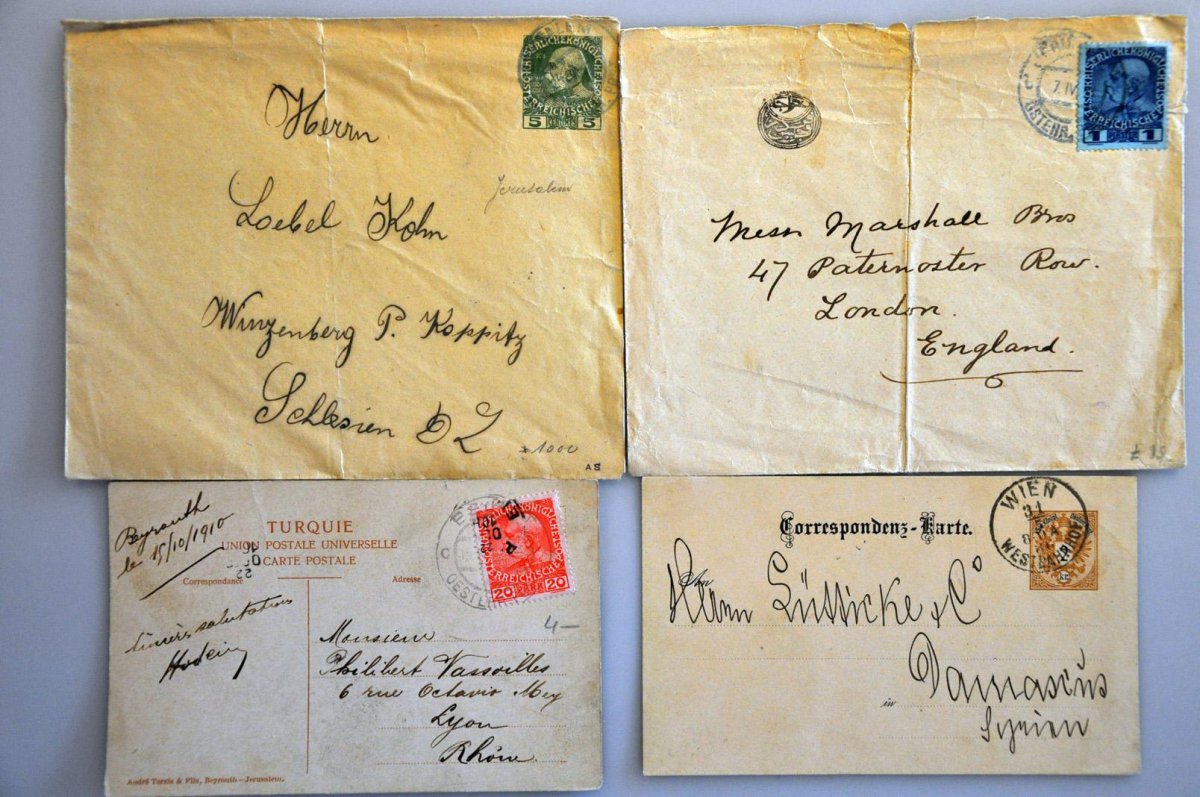 Herrn
Loebel Kohn
Jerusalem
Winzenberg P. Koppitz
Schlesien
1000
AS
5 5
Messrs Marshall Bros
47 Paternoster Row.
London.
England.
7 IV
1 1
TURQUIE
UNION POSTALE UNIVERSELLE
CARTE POSTALE
Correspondance
Adresse
Beyrouth
le 15/10/1910
salutations
Monsieur
Philibert Vassoilles
6 rue Octavio Mey
Lyon
Rhône
4-
20 20
André Terzis & Fils, Beyrouth-Jerusalem.
Correspondenz-Karte.
WIEN
Herrn Lütticke & Co
in Damascus
Syrien